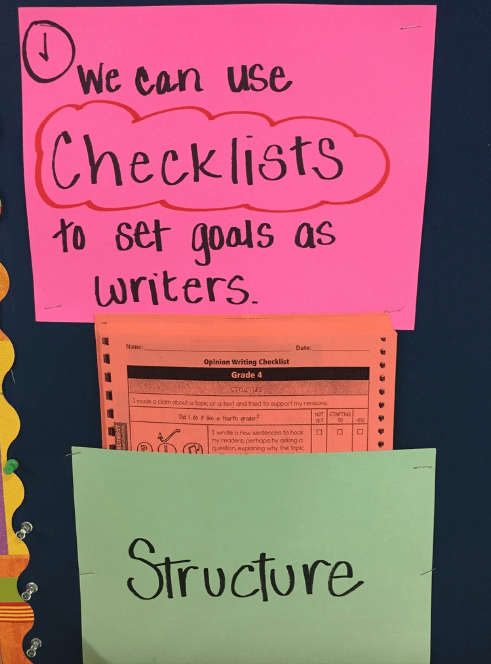 1
We can use
Checklists
to set goals as
writers.
Name: Date:
Opinion Writing Checklist
Grade 4
STRUCTURE
I made a claim about a topic or a text and tried to support my reasons.
Did I do it like a fourth grader? NOT YET STARTING TO YES!
I wrote a few sentences to hook
my readers, perhaps by asking a
question, explaining why the topic
Structure